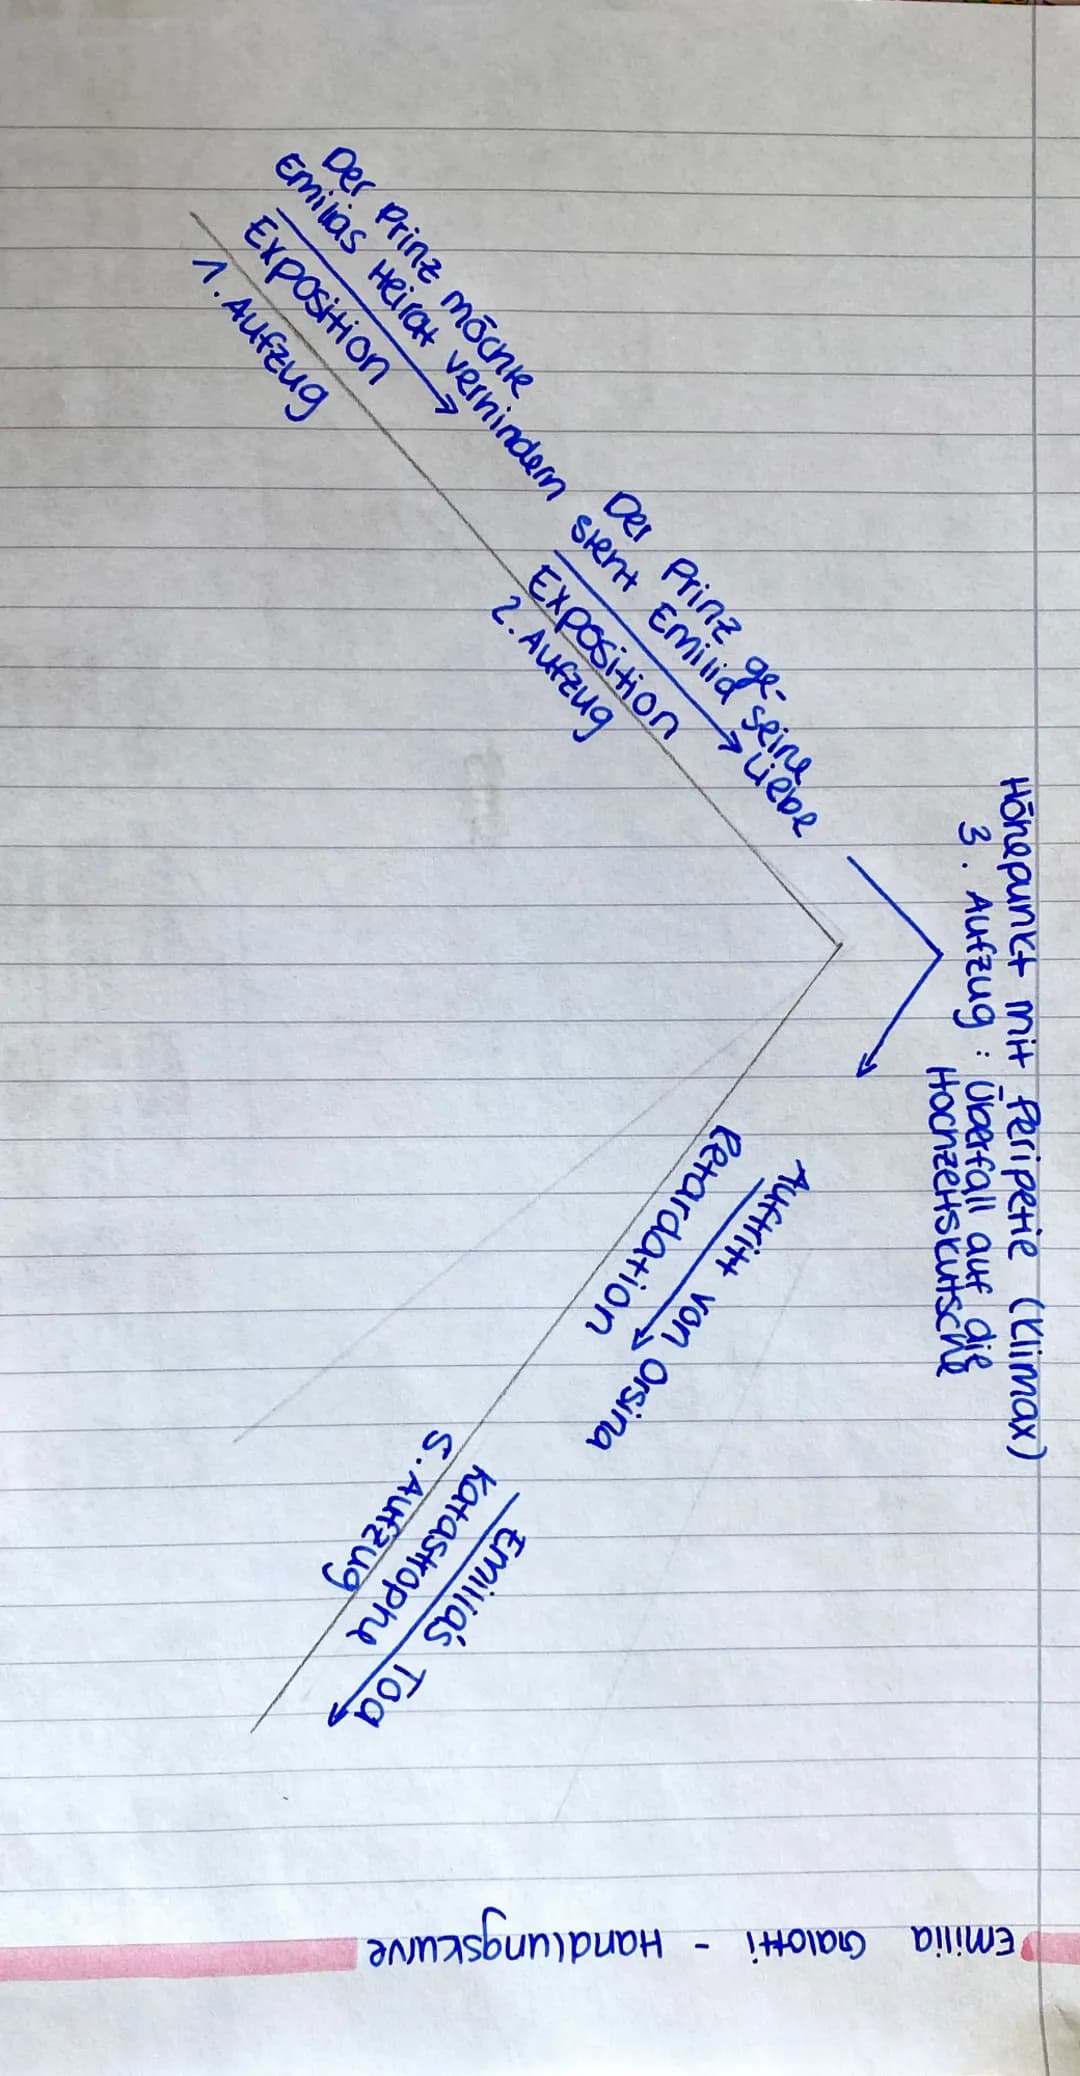 Emilia Galotti - Handlungskurve
Höhepunkt mit Peripetie (Klimax)
3. Aufzug : Überfall auf die
Hochzeitskutsche
Der Prinz möchte
Emilias Heirat verhindern
Exposition
1. Aufzug
Der Prinz ge-
steht Emilia seine
Liebe
Exposition
2. Aufzug
Auftritt von Orsina
Retardation
Emilia's Tod
Katastrophe
5. Aufzug